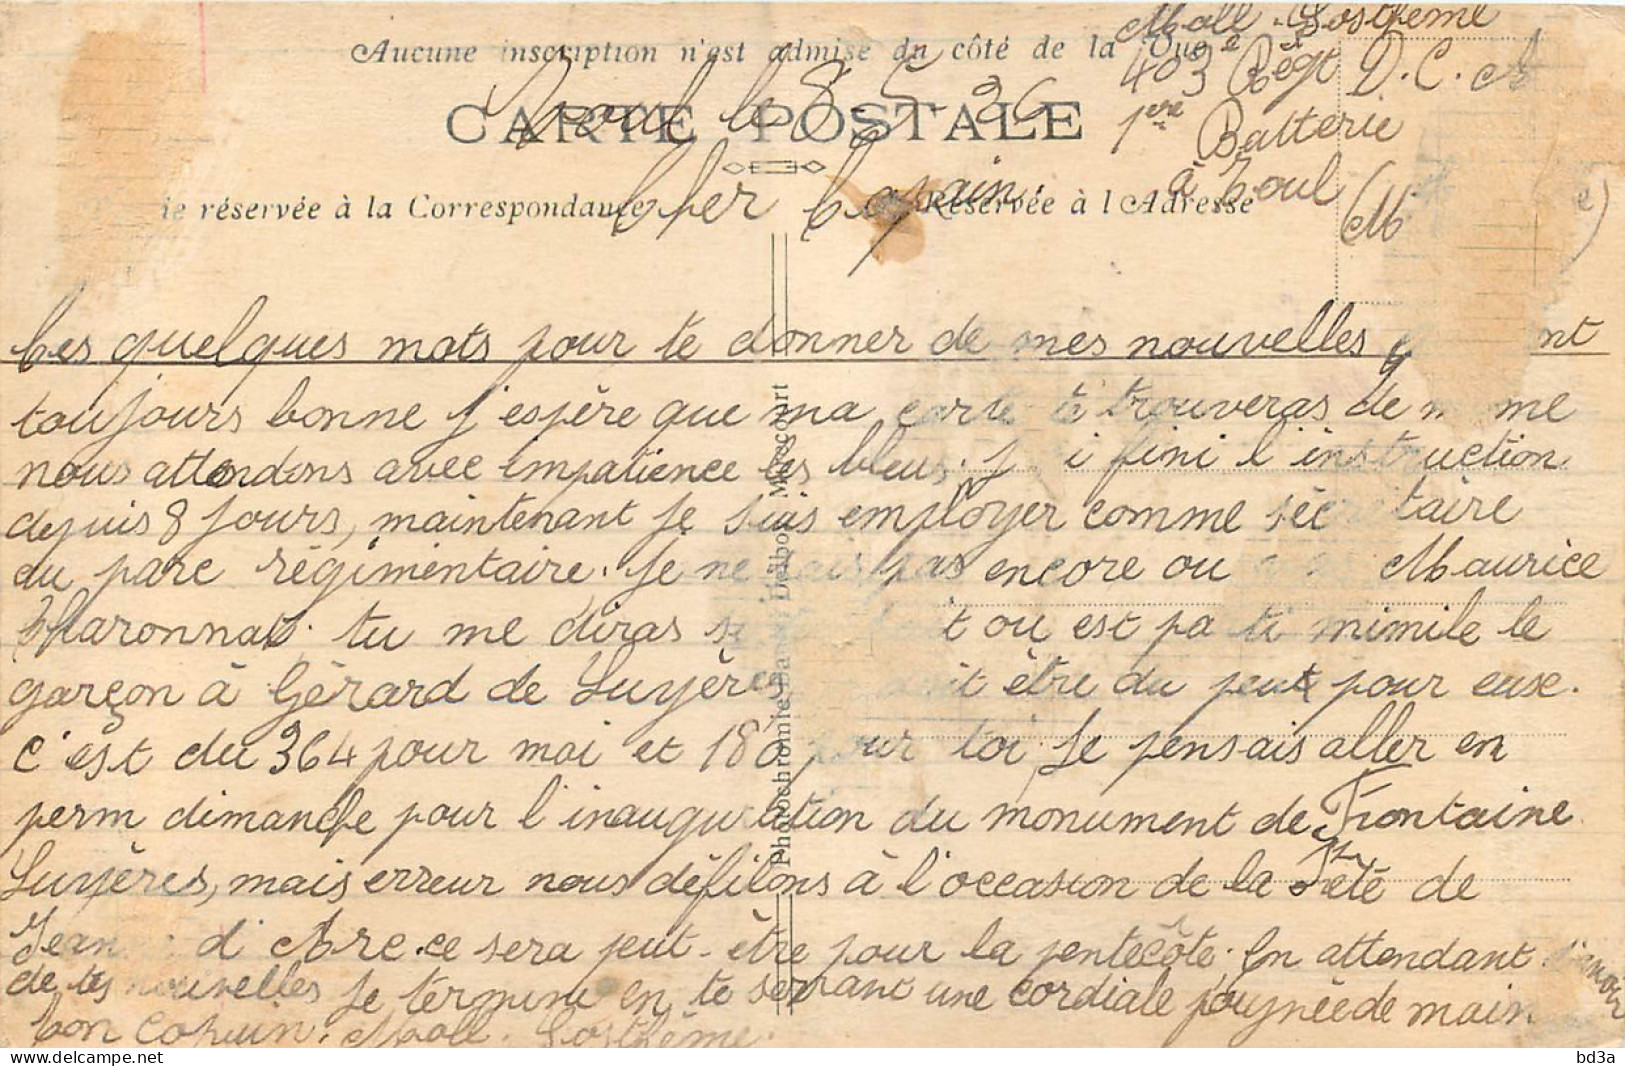 Moll. Sosthème
Aucune inscription n'est admise du côté de la Vue
403e Régt D.C.A
Toul le 8 5 36
CARTE POSTALE
1ère Batterie
à Toul (M
e)
Cher Copain.
ie réservée à la Correspondance
Réservée à l'Adresse
Ces quelques mots pour te donner de mes nouvelles
toujours bonne j'espère que ma carte te trouveras de même
nous attendons avec impatience les bleus. j'ai fini l'instruction
depuis 8 jours, maintenant je suis employer comme secrétaire
du parc régimentaire. Je ne sais pas encore ou Maurice
tu me diras où est parti mimile le
garçon à Gérard de Luyères doit être du peut pour euse.
c'est du 364 pour moi et 180 pour toi, Je pensais aller en
perm dimanche pour l'inauguration du monument de Frontaine
Luyères, mais erreur nous défilons à l'occasion de la Fête de
Jeanne d'Arc. ce sera peut-être pour la pentecôte. En attendant d'avoir
de tes nouvelles Je termine en te serrant une cordiale poignée de main
bon copain. Moll. Sosthème.
Photochromie Daniel Delboy, Mirecourt
bd3a